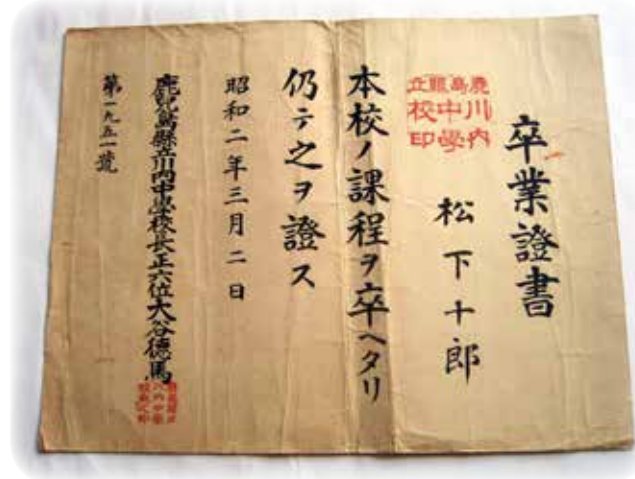 卒業證書
松下十郎
鹿兒島縣立川内中學校印
本校ノ課程ヲ卒ヘタリ
仍テ之ヲ證ス
昭和二年三月二日
鹿兒島縣立川内中學校長正六位大谷德馬
第一九五一號